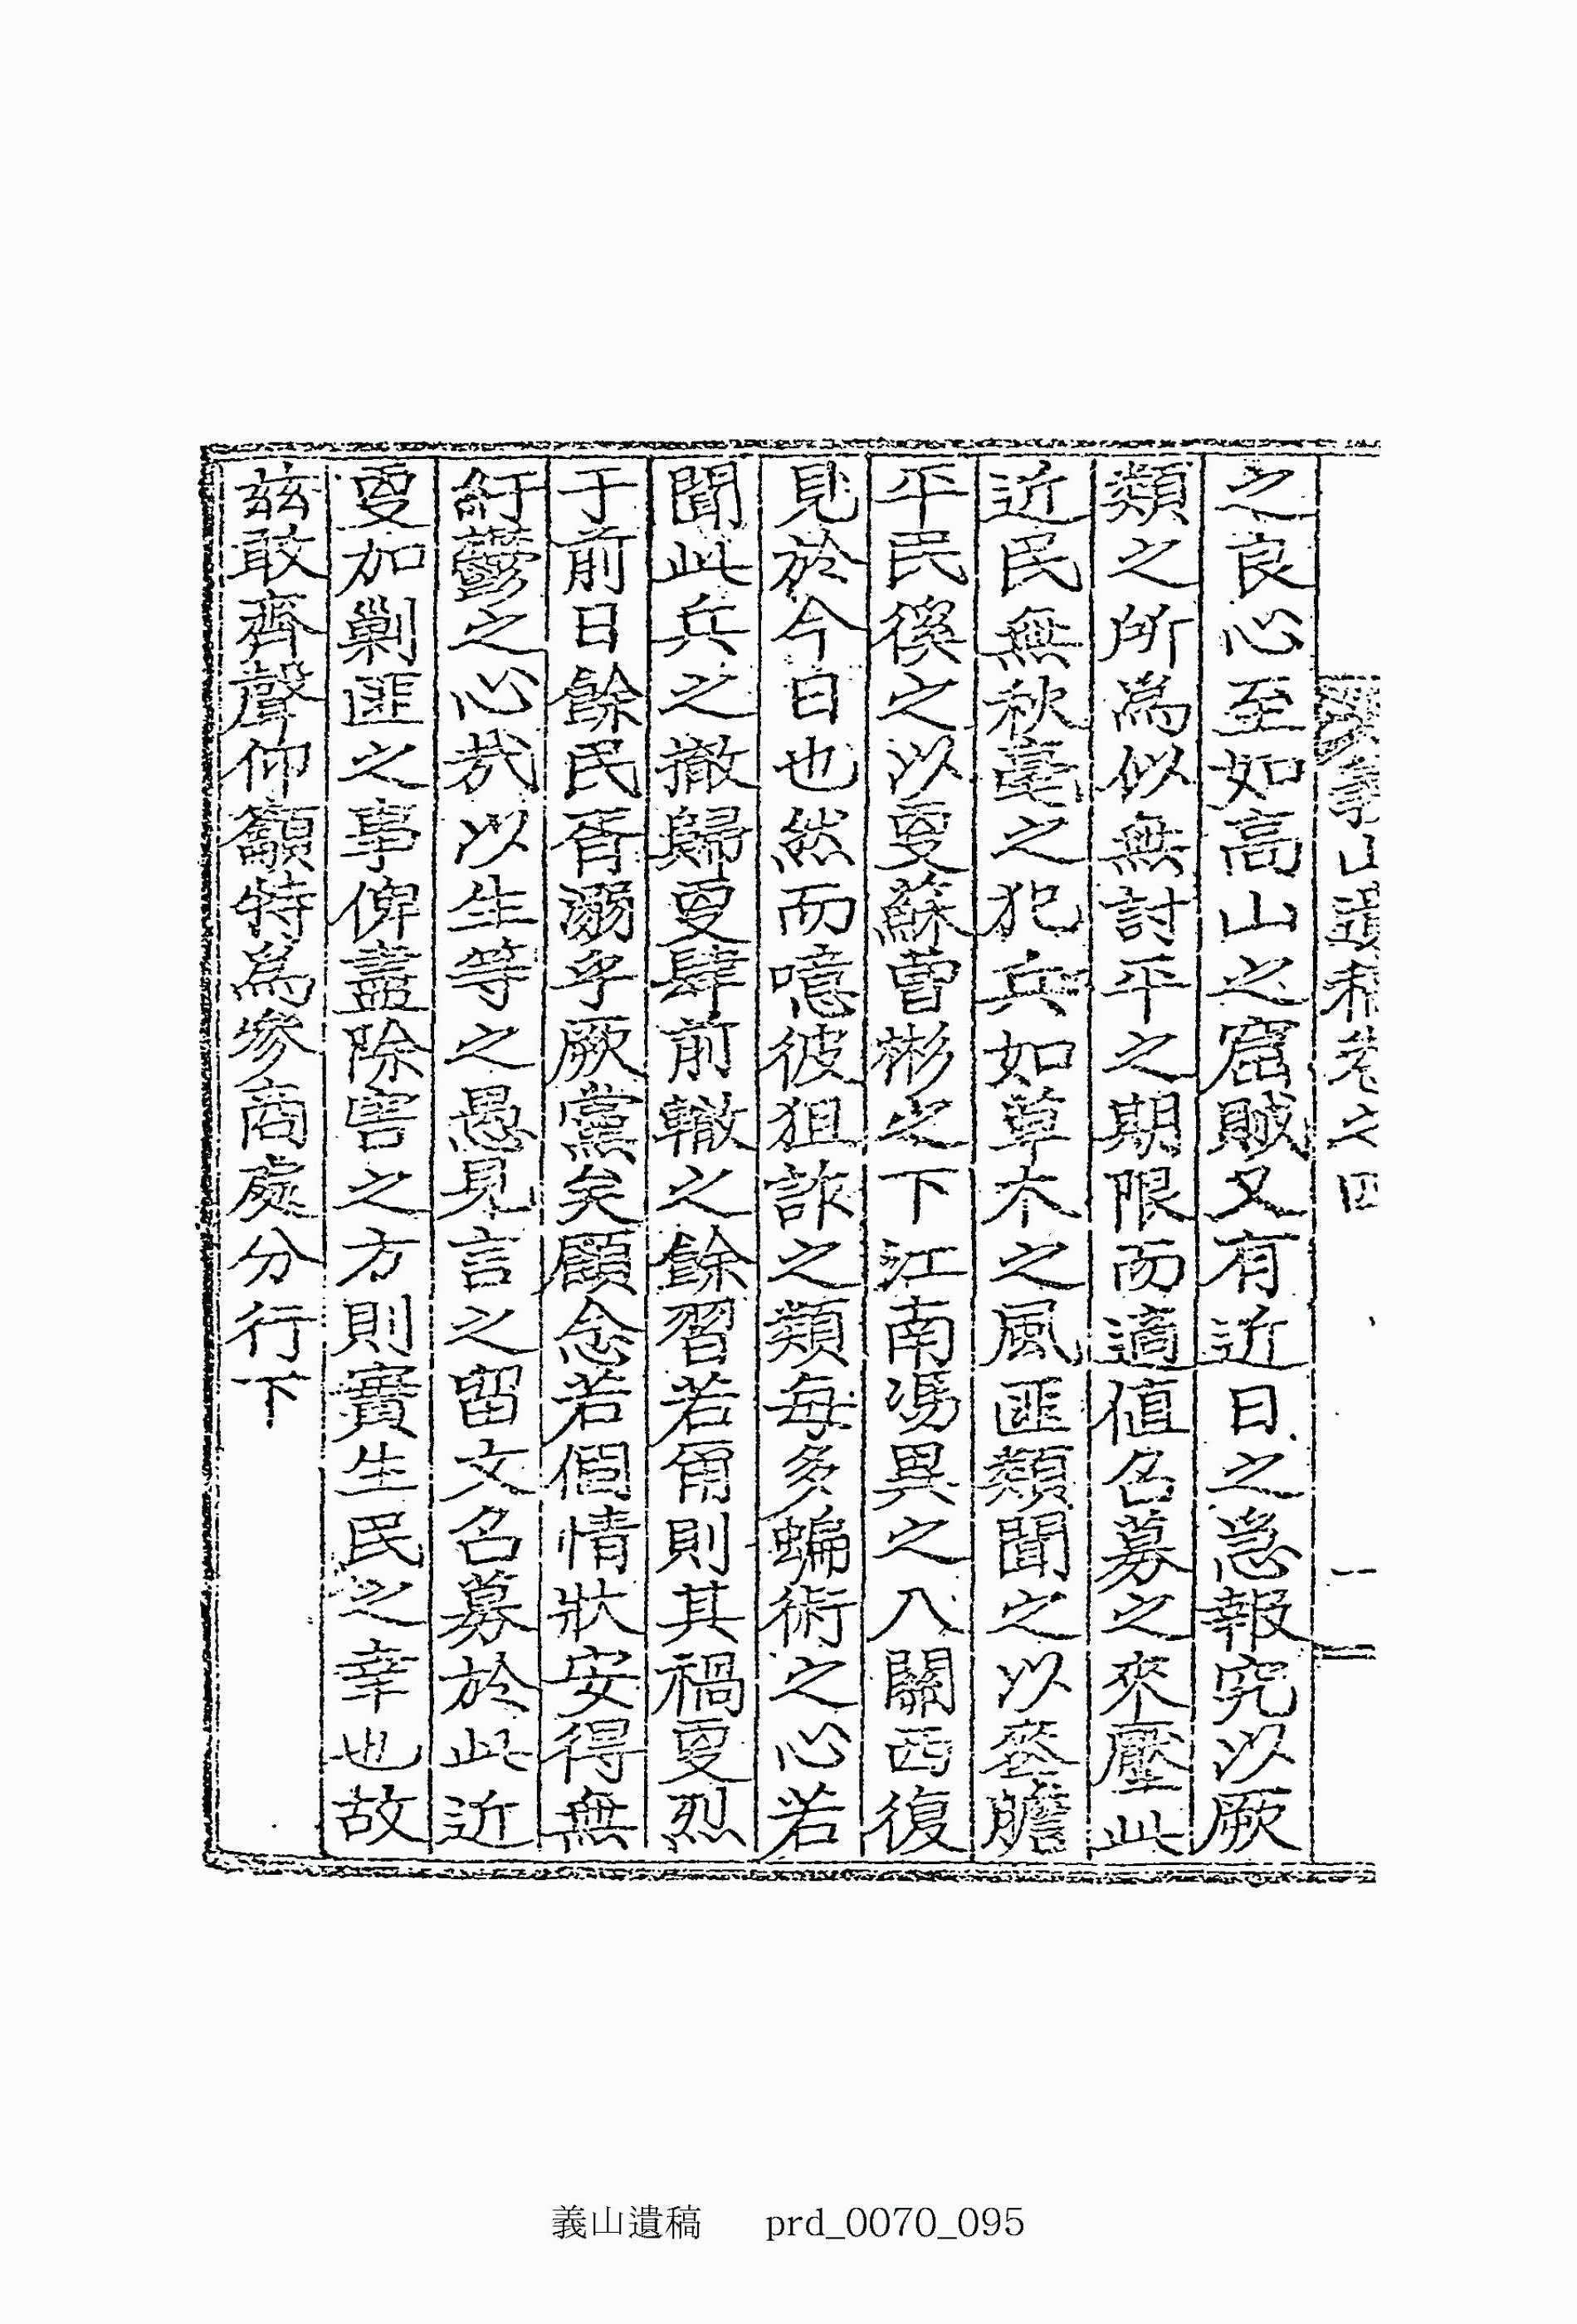 義山遺稿卷之四
二
之良心至如高山之窟賊又有近日之急報究以厥
類之所爲似無討平之期限而適値召募之來壓此
近民無秋毫之犯兵如草木之風匪類聞之以喪膽
平民徯之以更蘇曹彬之下江南馮異之入關西復
見於今日也然而噫彼狙詐之類每多蝙術之心若
聞此兵之撤歸更肆前轍之餘習若爾則其禍更烈
于前日餘民胥溺乎厥黨矣顧念若個情狀安得無
紆鬱之心哉以生等之愚見言之留文名募於此近
更加剿匪之事俾盡除害之方則實生民之幸也故
玆敢齊聲仰籲特爲參商處分行下
義山遺稿 prd_0070_095